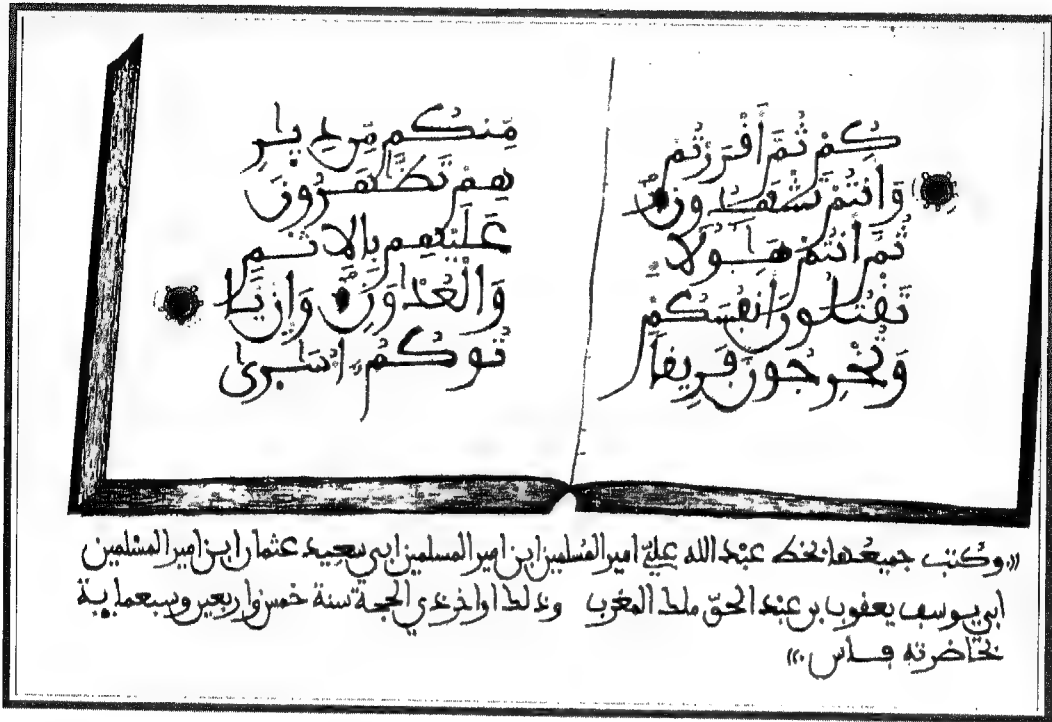 كُمْ ثُمَّ أَقْرَرْتُمْ
وَأَنتُمْ تَشْهَدُونَ
ثُمَّ أَنتُمْ هَـٰؤُلَاءِ
تَقْتُلُونَ أَنفُسَكُمْ
وَتُخْرِجُونَ فَرِيقاً
مِّنكُم مِّن دِيَـٰرِ
هِمْ تَظَّـٰهَرُونَ
عَلَيْهِم بِالاِثْمِ
وَالْعُدْوَٰنِ وَإِن يَا
تُوكُمُۥ أُسَـٰرَىٰ
((وكتب جميعها بخط عبد الله عليّ امير المسلمين ابن امير المسلمين ابي سعيد عثمان ابن امير المسلمين
ابي يوسف يعقوب بن عبد الحقّ ملك المغرب وذلك اواخر ذي الحجة سنة خمس واربعين وسبعماية
بحاضرته فاس.))